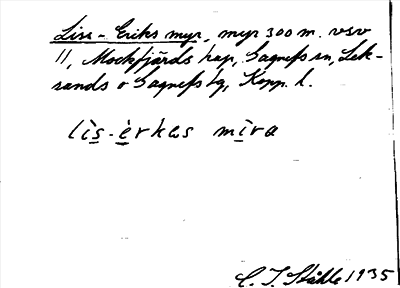 Liss-Eriks myr, myr 300 m. vsv
11, Mockfjärds kap, Gagnefs sn, Lek-
sands o Gagnefs tg, Kopp. l.
lis-erkas mira
C. I. Ståhle 1935